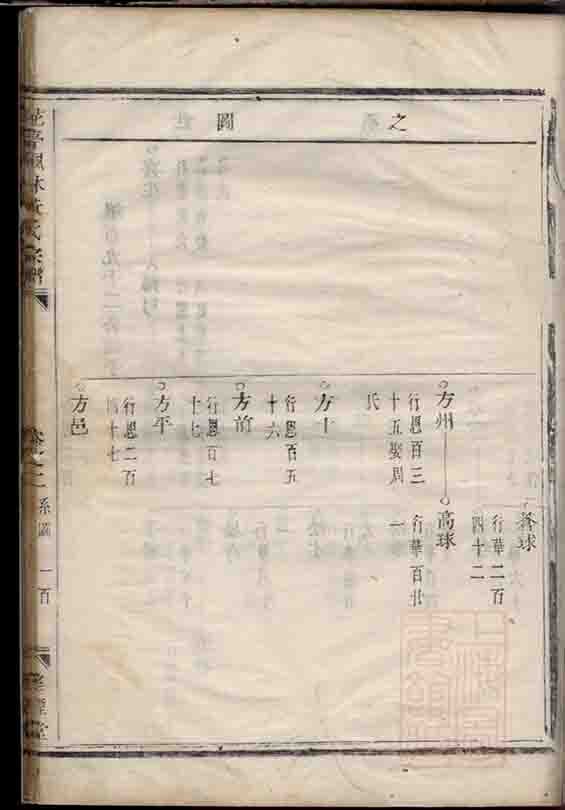 之　圖
蒼球
行華二百
四十二
方州
高球
行恩百三
十五娶周
氏
行華百廿
一
方十
行恩百五
十六
方前
行恩百七
十七
方平
行恩二百
四十七
方邑
氏宗譜
卷之二
系圖
一百
堂